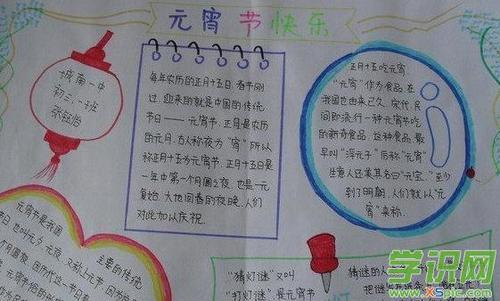 元宵节快乐
城南一中
初三、一班
张钰怡
每年农历的正月十五日，春节刚
过，迎来的就是中国的传统
节日——元宵节，正月是农历
的元月，古人称夜为“宵”所以
称正月十五为元宵节。正月十五是
一年中第一个月圆之夜，也是一元
复始，大地回春的夜晚，人们
对此加以庆祝
正月十五吃元宵
“元宵”作为食品，在
我国也由来已久，宋代，民
间即流行一种元宵节吃
的新奇食品，这种食品，最
早叫“浮元子”后称“元宵”
生意人还美其名曰“元宝”，至少
到了明朝，人们就以“元
宵”来称
元宵节是我国
主要的传统
日，也叫元夕、元夜
又称上元节
“猜灯谜”又叫
“打灯谜”，是元宵节
猜谜的人
学识网
xspic.com